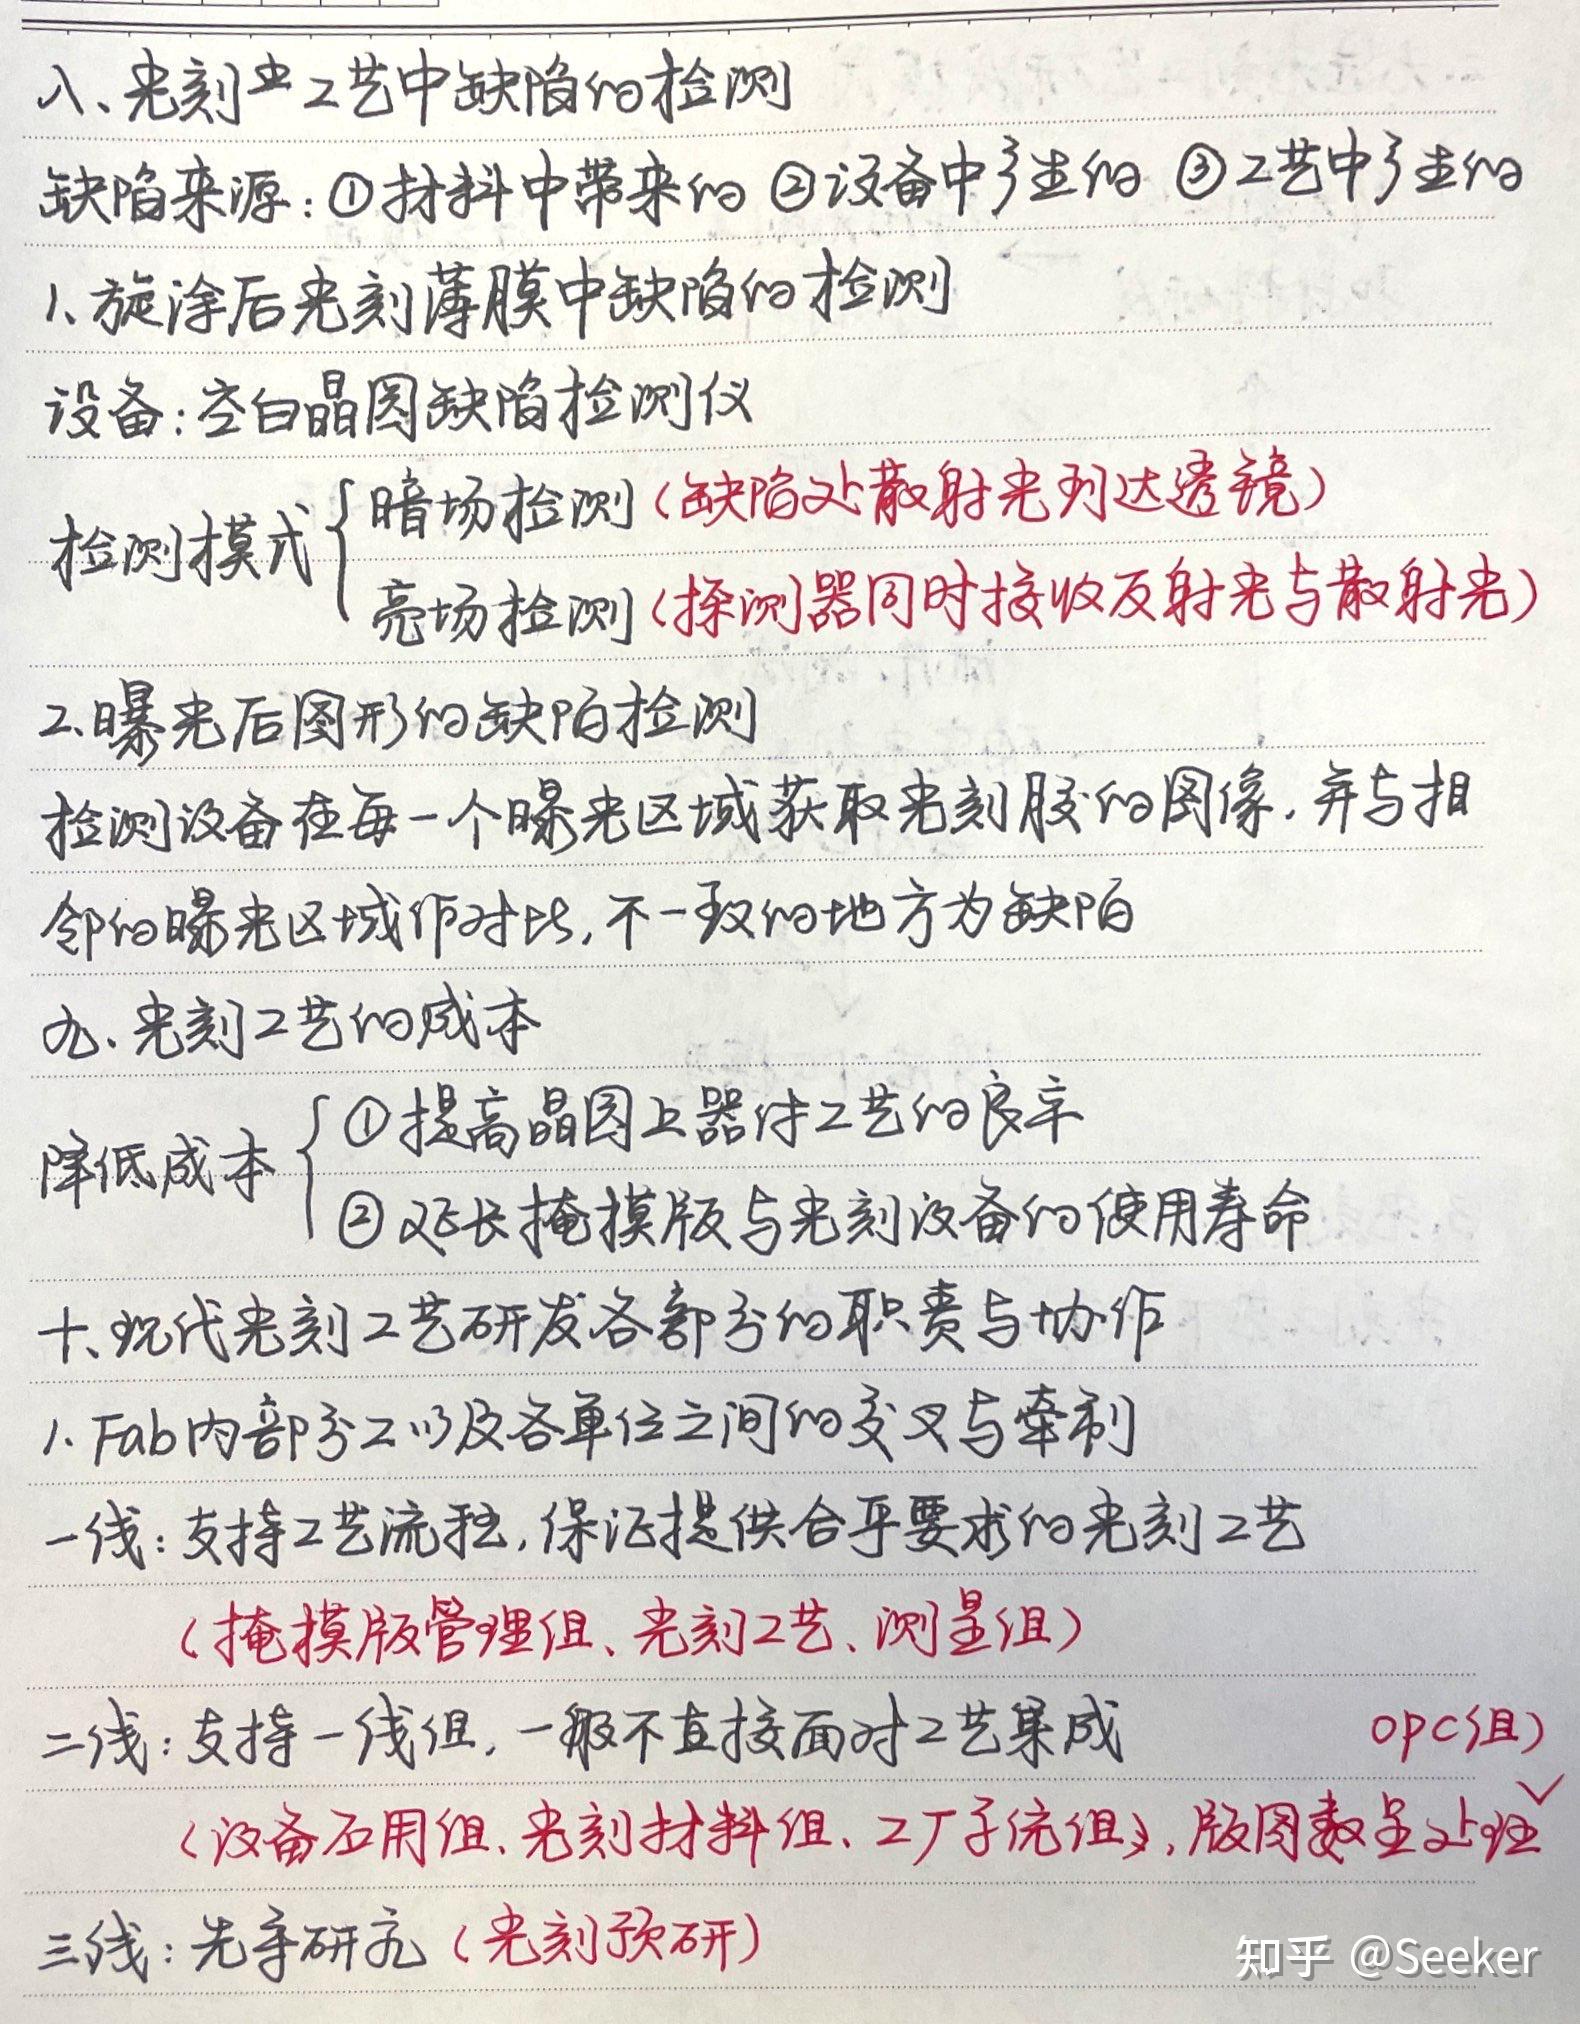 八、光刻工艺中缺陷的检测
缺陷来源:①材料中带来的 ②设备中产生的 ③工艺中产生的
1、旋涂后光刻薄膜中缺陷的检测
设备:空白晶圆缺陷检测仪
检测模式
暗场检测(缺陷处散射光到达透镜)
亮场检测(探测器同时接收反射光与散射光)
2、曝光后图形的缺陷检测
检测设备在每一个曝光区域获取光刻胶的图像,并与相
邻的曝光区域作对比,不一致的地方为缺陷
九、光刻工艺的成本
降低成本
①提高晶圆上器件工艺的良率
②延长掩模版与光刻设备的使用寿命
十、现代光刻工艺研发各部分的职责与协作
1、Fab内部分工以及各单位之间的交叉与牵制
一线:支持工艺流程,保证提供合乎要求的光刻工艺
(掩模版管理组、光刻工艺、测量组)
二线:支持一线组,一般不直接面对工艺集成
(设备应用组、光刻材料组、工厂系统组、版图数据处理
OPC组)
三线:先导研究(光刻预研)
知乎 @Seeker